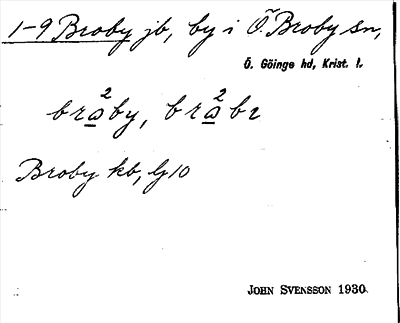 1-9 Broby jb, by i Ö. Broby sn,
Ö. Göinge hd, Krist. l.
Broby kb, G10
JOHN SVENSSON 1930.